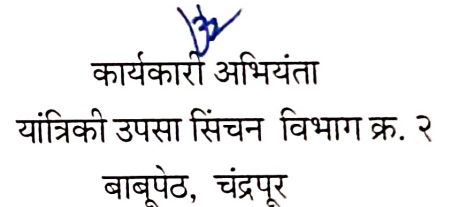 कार्यकारी अभियंता
यांत्रिकी उपसा सिंचन विभाग क्र. २
बाबूपेठ, चंद्रपूर